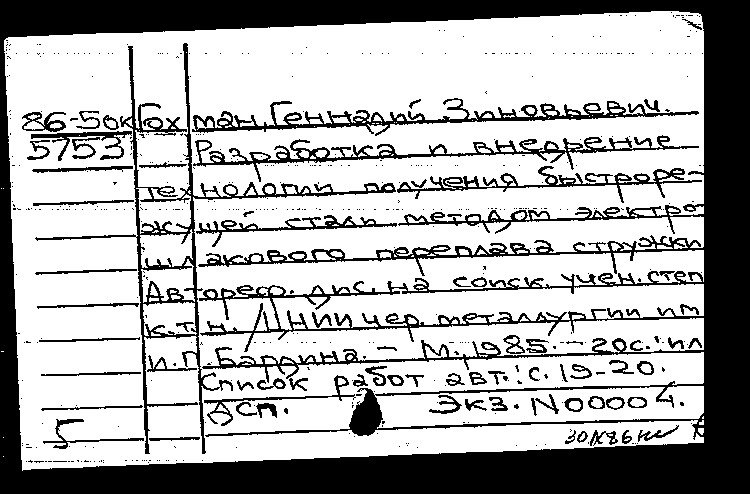 86-5ок Гохман, Геннадий Зиновьевич.
5753 Разработка и внедрение
технологии получения быстроре-
жущей стали методом электро-
шлакового переплава стружки
Автореф. дис. на соиск. учен. степ
к.т.н. /ЦНИИ чер. металлургии им
И.П. Бардина. - М., 1985. - 20с.: ил
Список работ авт.: с. 19-20.
ДСП. Экз. N00004.
5